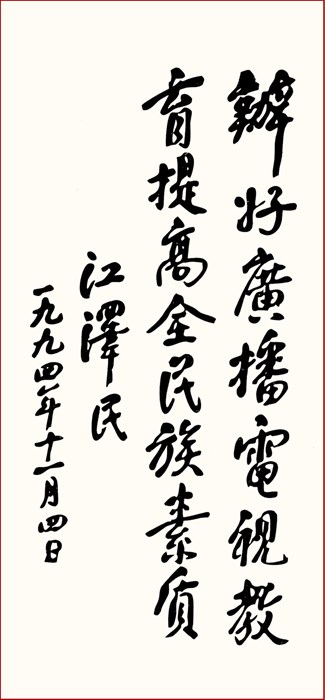 辦好廣播電視教
育提高全民族素质
江澤民
一九九四年十一月四日